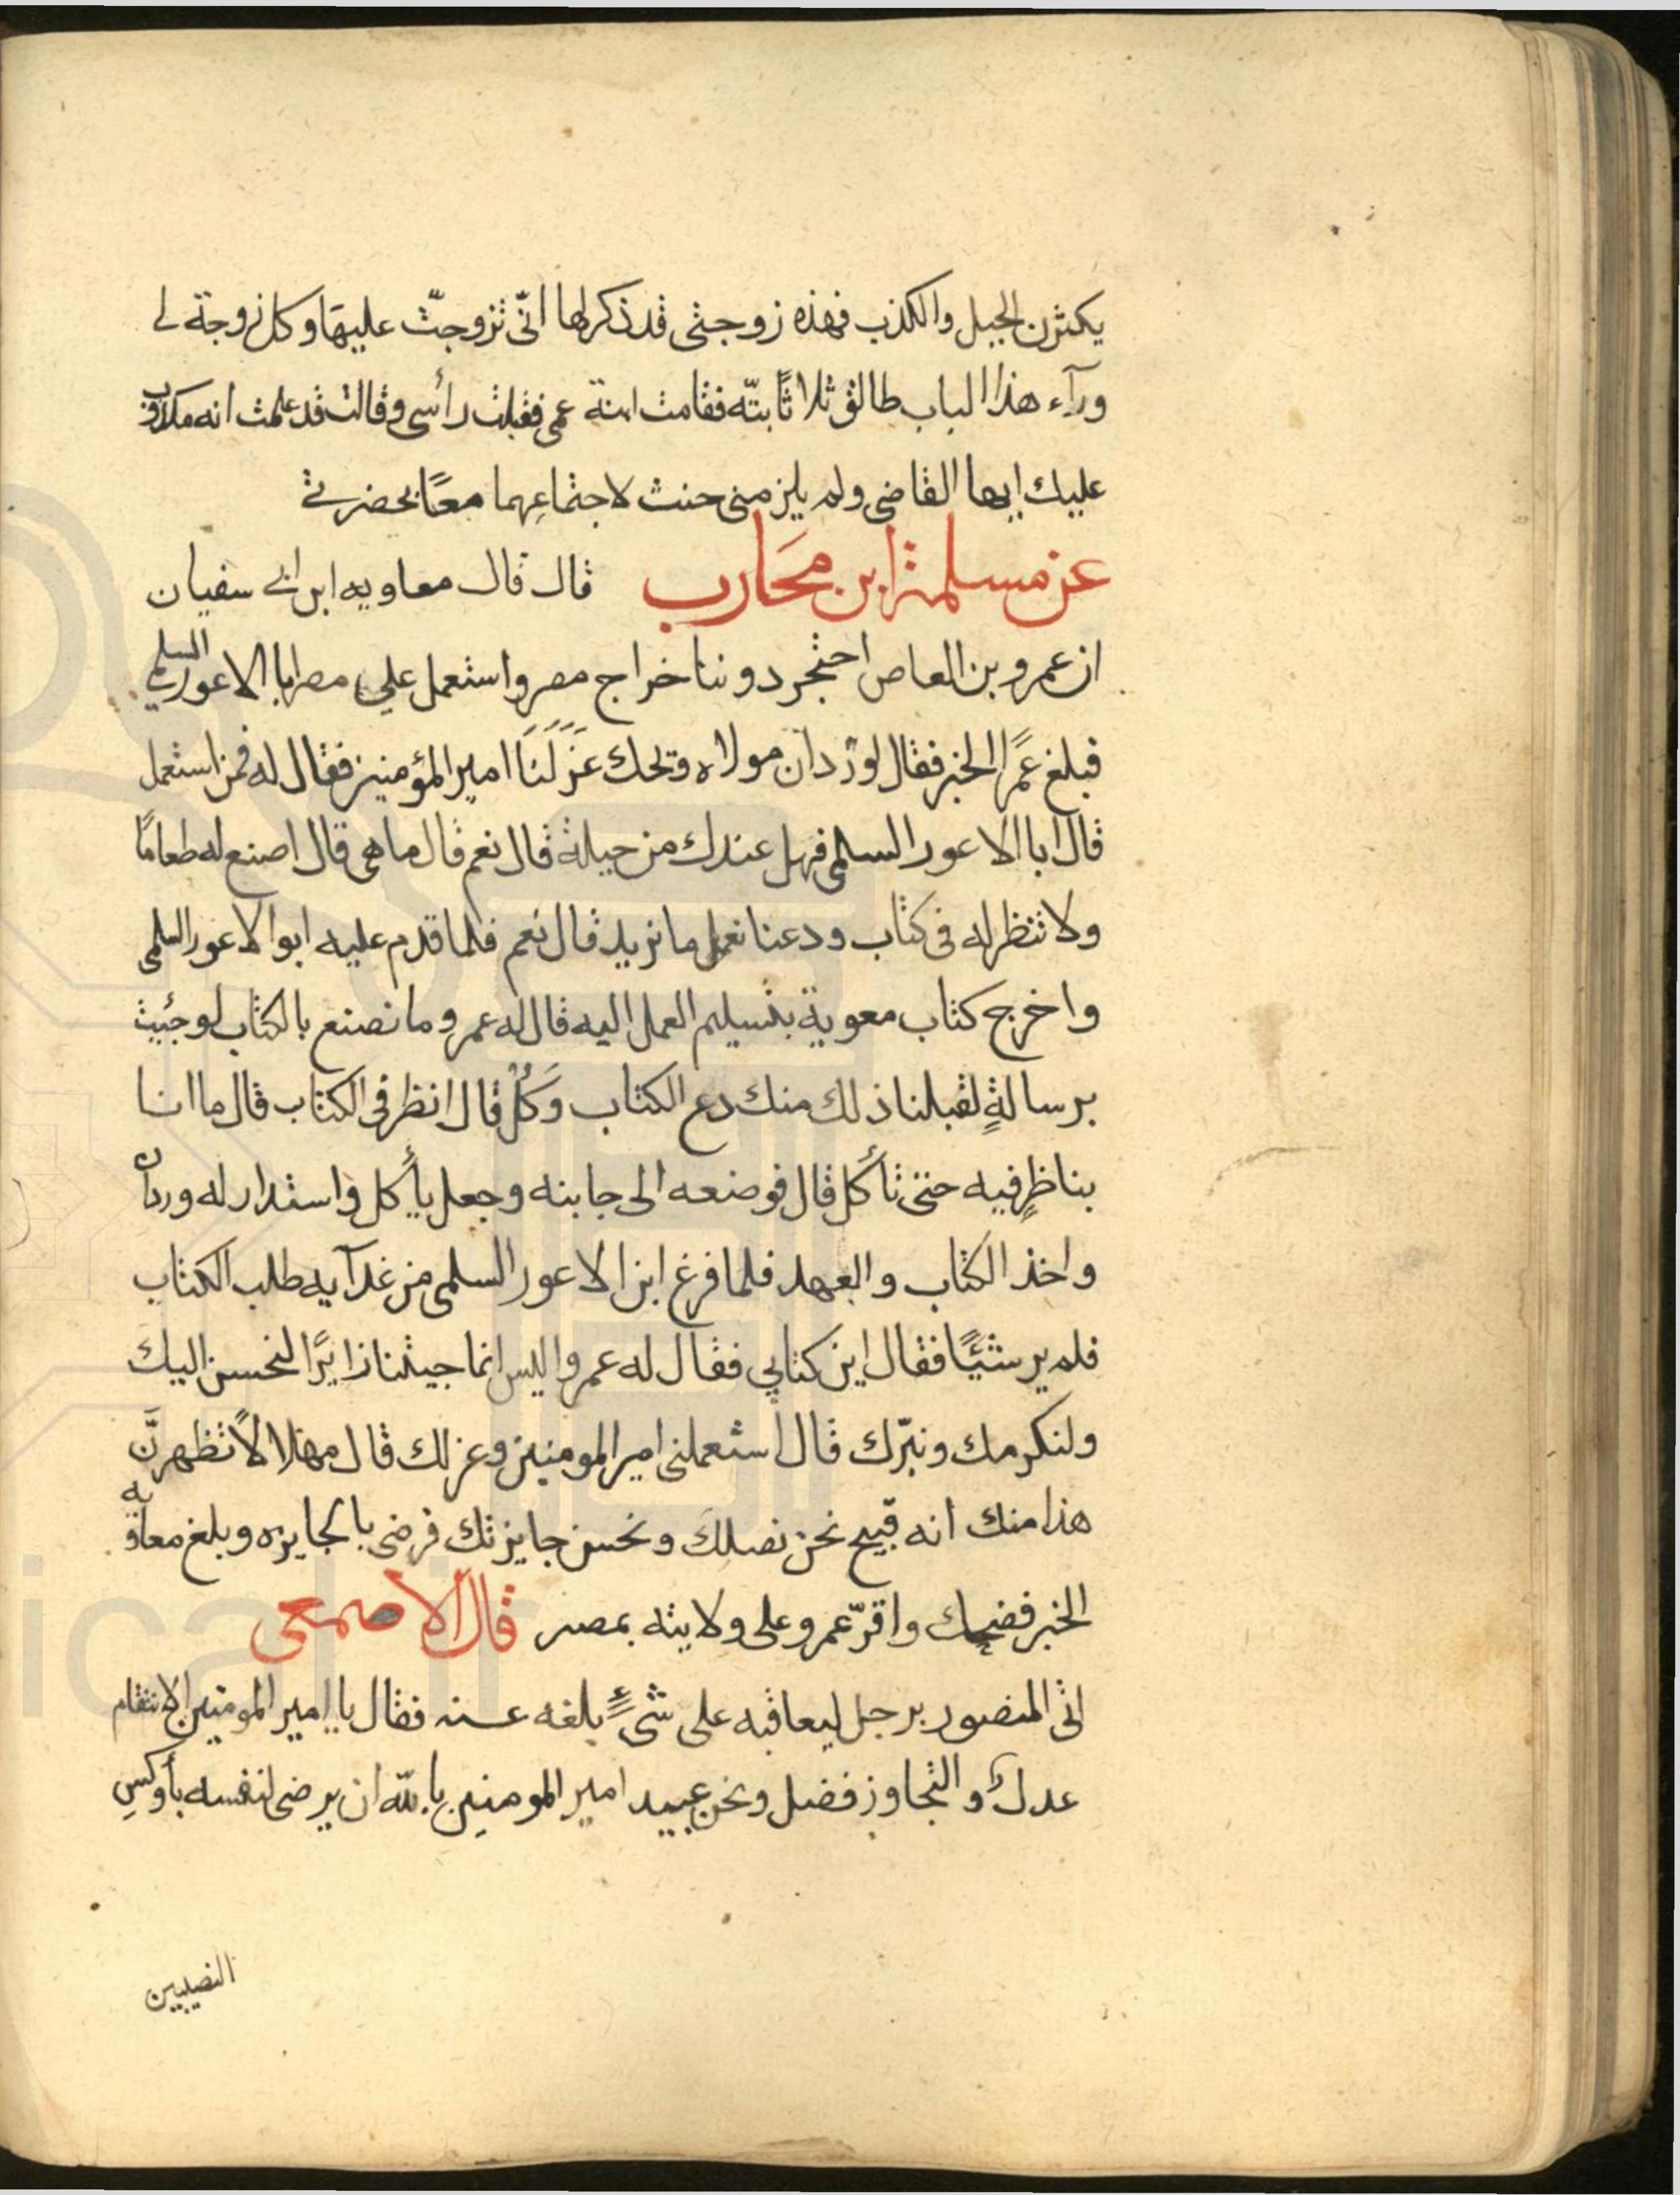 يكثرن الحيل والكذب فهذه زوجتى قد ذكر لها انّى تزوجتّ عليهَا وكل زوجة لى
ورآء هذا الباب طالق ثلاثاً بتّه فقامت ابنة عمى فقبلت رأسى وقالت قد علمت انه مكذوب
عليك ايها القاضى ولم يلزمنى حنث لاجتماعِهما معًا بحضرتى
عن مسلمة ابن محَارب قال قال معاويه ابن ابى سفيان
ان عمرو بن العاص احتجر دوننا خراج مصر واستعمل على مصر ابا الاعور السلمي
فبلغ عمرًا الخبر فقال لورْدان مولاه ويحك عَزَلَنَا امير المؤمنين فقال له فمن استعمل
قال ابا الاعور السلمى فهل عندك من حيلة قال نعم قال ما هى قال اصنع له طعامًا
ولا تنظر له فى كتاب ودعنا نعمل ما نريد قال نعم فلما قدم عليه ابو الاعور السلمى
واخرج كتاب معوية بتسليم العمل اليه قال له عمرو ما نصنع بالكتاب لو جئيت
برسالةٍ لقبلنا ذلك منك دع الكتاب وَكُلْ قال انظر فى الكتاب قال ما انا
بناظرٍ فيه حتى تأكل قال فوضعه الى جابنه وجعل يأكل واستدار له وردان
واخذ الكتاب والعهد فلما فرغ ابن الاعور السلمى من غدآيه طلب الكتاب
فلم ير شيئًا فقال اين كتابي فقال له عمرو اليس انما جيتنا زايرًا لنحسن اليك
ولنكرمك ونبرّك قال استعملنى امير المومنين وعزلك قال مهلا لا تظهرنَّ
هذا منك انه قبيح نحن نصلك ونحسن جايزتك فرضى بالجايزه وبلغ معاويه
الخبر فضحك واقرّ عمرو على ولايته بمصر قال الاصمعى
اتى المنصور برجل ليعاقبه على شىءٍ بلغه عنه فقال يا امير المومنين الانتقام
عدل والتجاوز فضل ونحن عبيد امير المومنين بالله ان يرضى لنفسه بأوكسِ
النصيبين